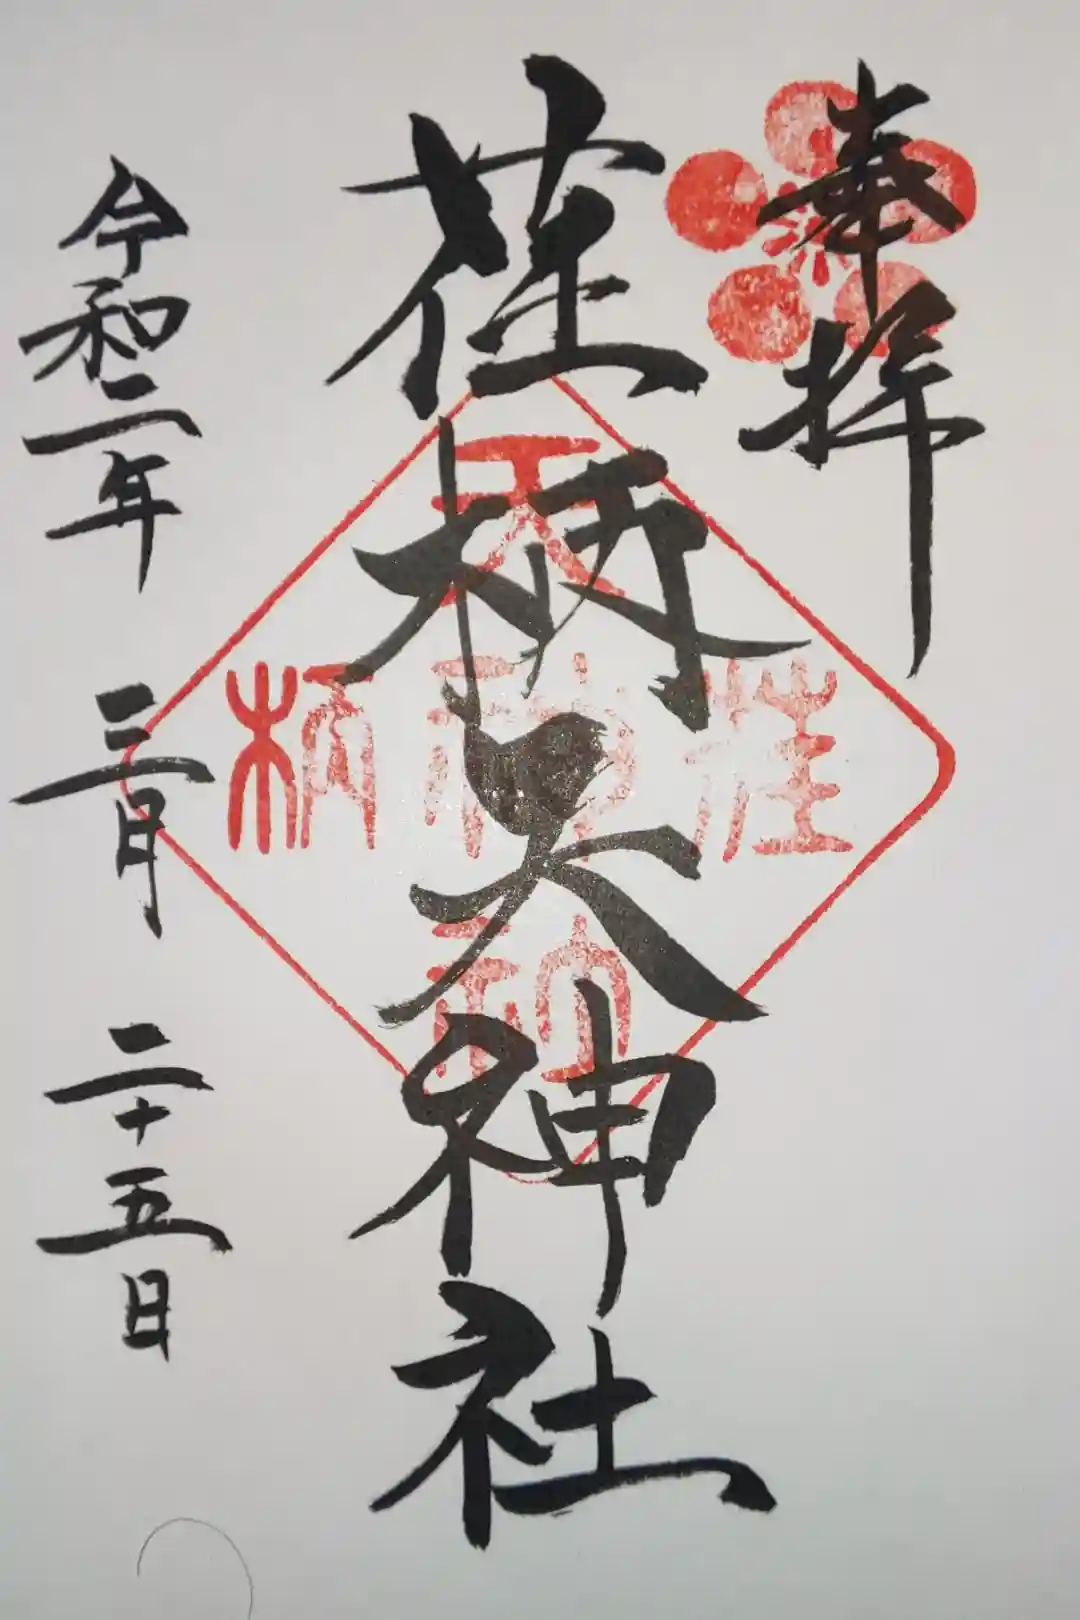 奉拝
荏柄天神社
天
荏神柄
社
令和二年 三月 二十五日